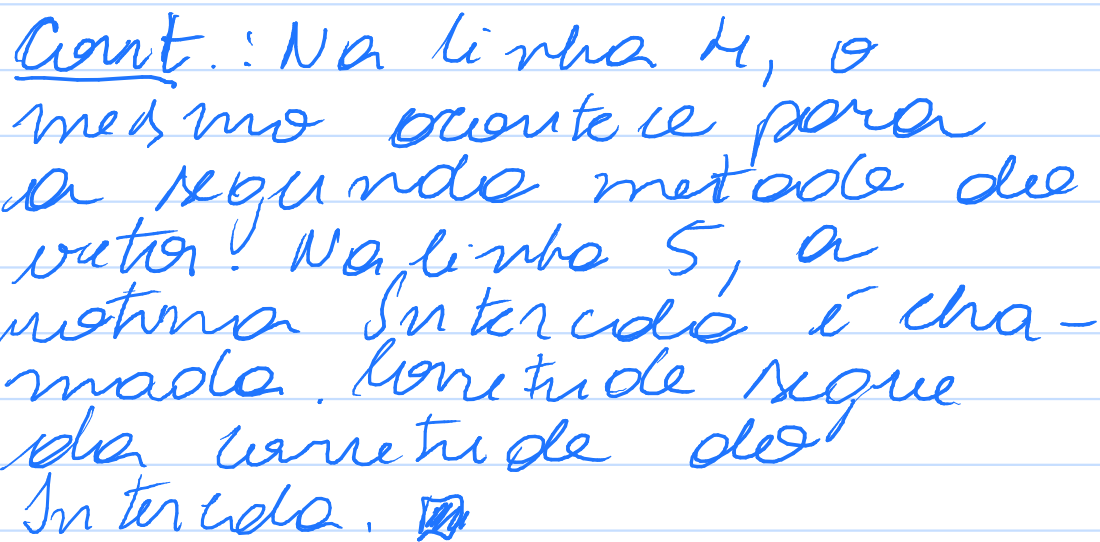 Cont.: Na linha 4, o
mesmo acontece para
a segunda metade do
vetor. Na linha 5, a
rotina Intercala é cha-
mada. Corretude segue
da corretude do
Intercala.